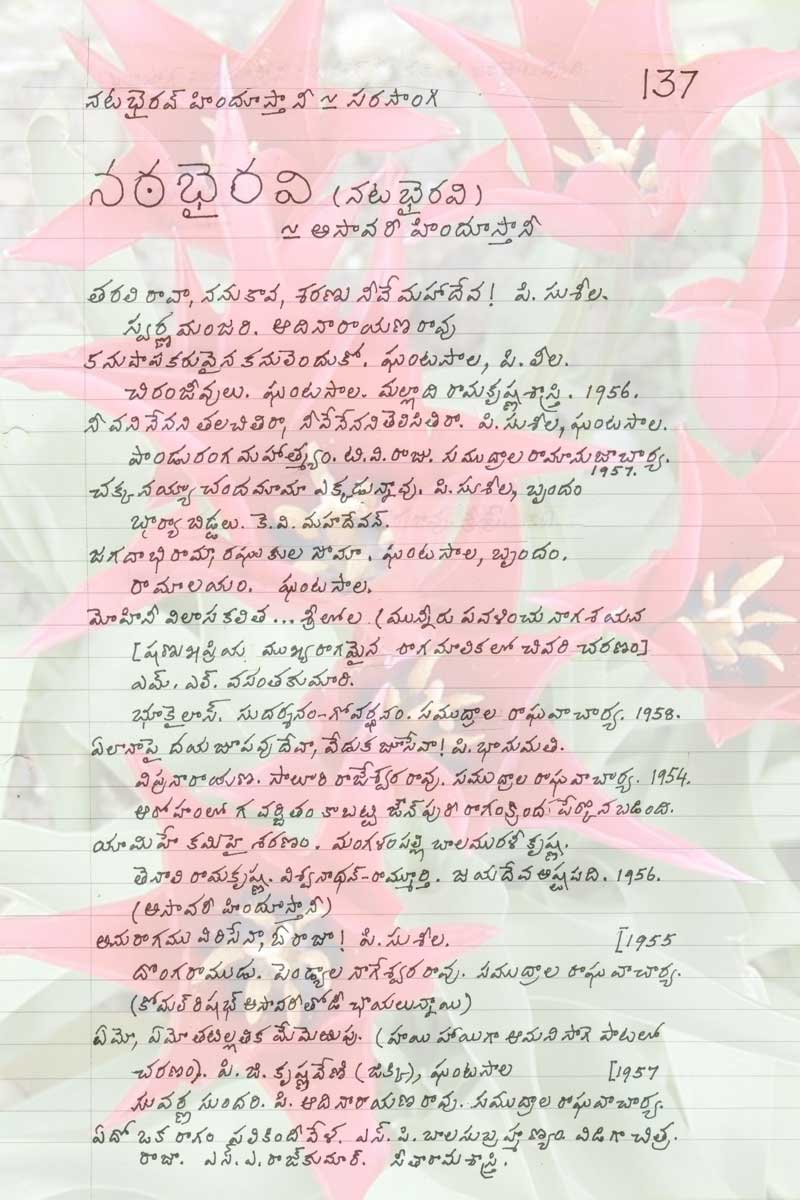 137
నటభైరవ్ హిందూస్తానీ ≃ సరసాంగి
నఠభైరవి (నటభైరవి)
≃ ఆసావరీ హిందూస్తానీ
తరలి రావా, నను కావ, శరణు నీవే మహాదేవ! పి. సుశీల.
స్వర్ణమంజరి. ఆదినారాయణరావు
కనుపాప కరువైన కనులెందుకో. ఘంటసాల, పి. లీల.
చిరంజీవులు. ఘంటసాల. మల్లాది రామకృష్ణశాస్త్రి. 1956.
నీవని నేనని తలచితిరా, నీవే నేనని తెలిసితిరా. పి. సుశీల, ఘంటసాల.
పాండురంగ మహాత్మ్యం. టి.వి. రాజు. సముద్రాల రామానుజాచార్య.
1957.
చక్కనయ్యా చందమామా ఎక్కడున్నావు. పి. సుశీల, బృందం
భార్యా బిడ్డలు. కె.వి. మహదేవన్.
జగదాభిరామా, రఘుకుల సోమా. ఘంటసాల, బృందం.
రామాలయం. ఘంటసాల.
మోహినీ విలాస కలిత... శ్రీలోల (మున్నీరు పవళించు నాగశయన
[షణ్ముఖప్రియ ముఖ్యరాగమైన రాగమాలికలో చివరి చరణం]
ఎమ్. ఎల్. వసంతకుమారి.
భూకైలాస్. సుదర్శనం-గోవర్ధనం. సముద్రాల రాఘవాచార్య. 1958.
ఏలా నాపై దయజూపవు దేవా, వేడుక జూసేవా! పి. భానుమతి.
విప్రనారాయణ. సాలూరి రాజేశ్వరరావు. సముద్రాల రాఘవాచార్య. 1954.
ఆరోహంలో గ వర్జితం కాబట్టి జౌన్‌పురి రాగంక్రింద పేర్కొనబడింది.
యామిహే కమిహై శరణం. మంగళంపల్లి బాలమురళీకృష్ణ.
తెనాలి రామకృష్ణ. విశ్వనాథన్-రామ్మూర్తి. జయదేవ అష్టపది. 1956.
(ఆసావరీ హిందూస్తానీ)
అనురాగము విరిసేనా, ఓ రాజా! పి. సుశీల. [1955
దొంగరాముడు. పెండ్యాల నాగేశ్వరరావు. సముద్రాల రాఘవాచార్య.
(కోమల్ రిషభ్ ఆసావరీతోడీ ఛాయలున్నాయి)
ఏమో, ఏమో తటిల్లతిక మేమెఱుపు. (హాయి హాయిగా ఆమని సాగె పాటలో
చరణం). పి. జి. కృష్ణవేణి (జిక్కి), ఘంటసాల [1957
సువర్ణ సుందరి. పి. ఆదినారాయణరావు. సముద్రాల రాఘవాచార్య.
ఏదో ఒక రాగం పలికిందీవేళ. ఎస్. పి. బాలసుబ్రహ్మణ్యం విడిగా చిత్ర.
రాజా. ఎస్. ఎ. రాజ్‌కుమార్. సీతారామశాస్త్రి.